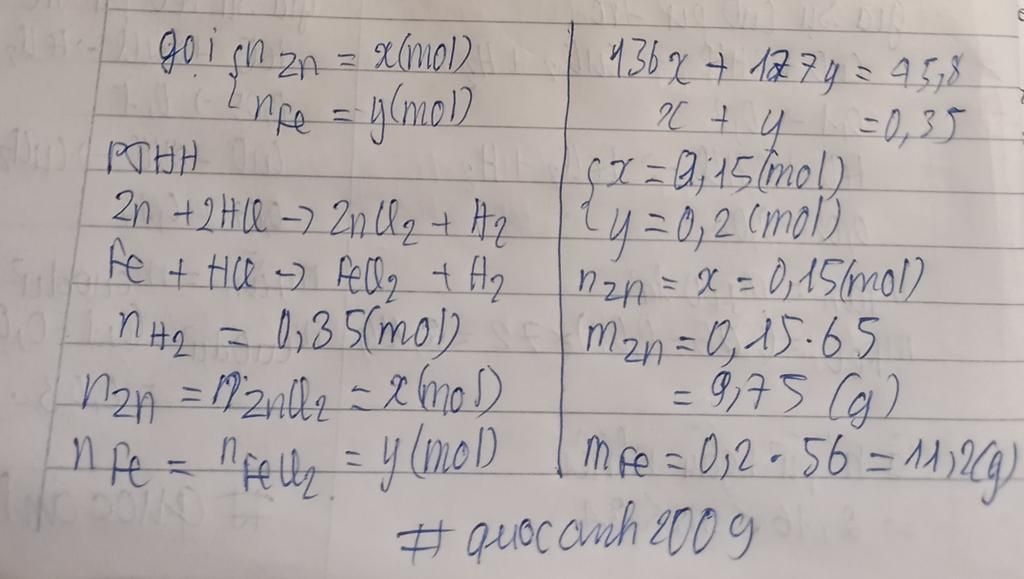 gọi { nZn = x(mol)
nFe = y(mol)
PTHH
Zn + 2HCl → ZnCl2 + H2
Fe + HCl → FeCl2 + H2
nH2 = 0,35(mol)
nZn = nZnCl2 = x(mol)
nFe = nFeCl2 = y(mol)
136x + 127y = 45,8
x + y = 0,35
{ x = 0,15(mol)
y = 0,2(mol)
nZn = x = 0,15(mol)
mZn = 0,15.65
= 9,75 (g)
mFe = 0,2.56 = 11,2(g)
# quocanh2009